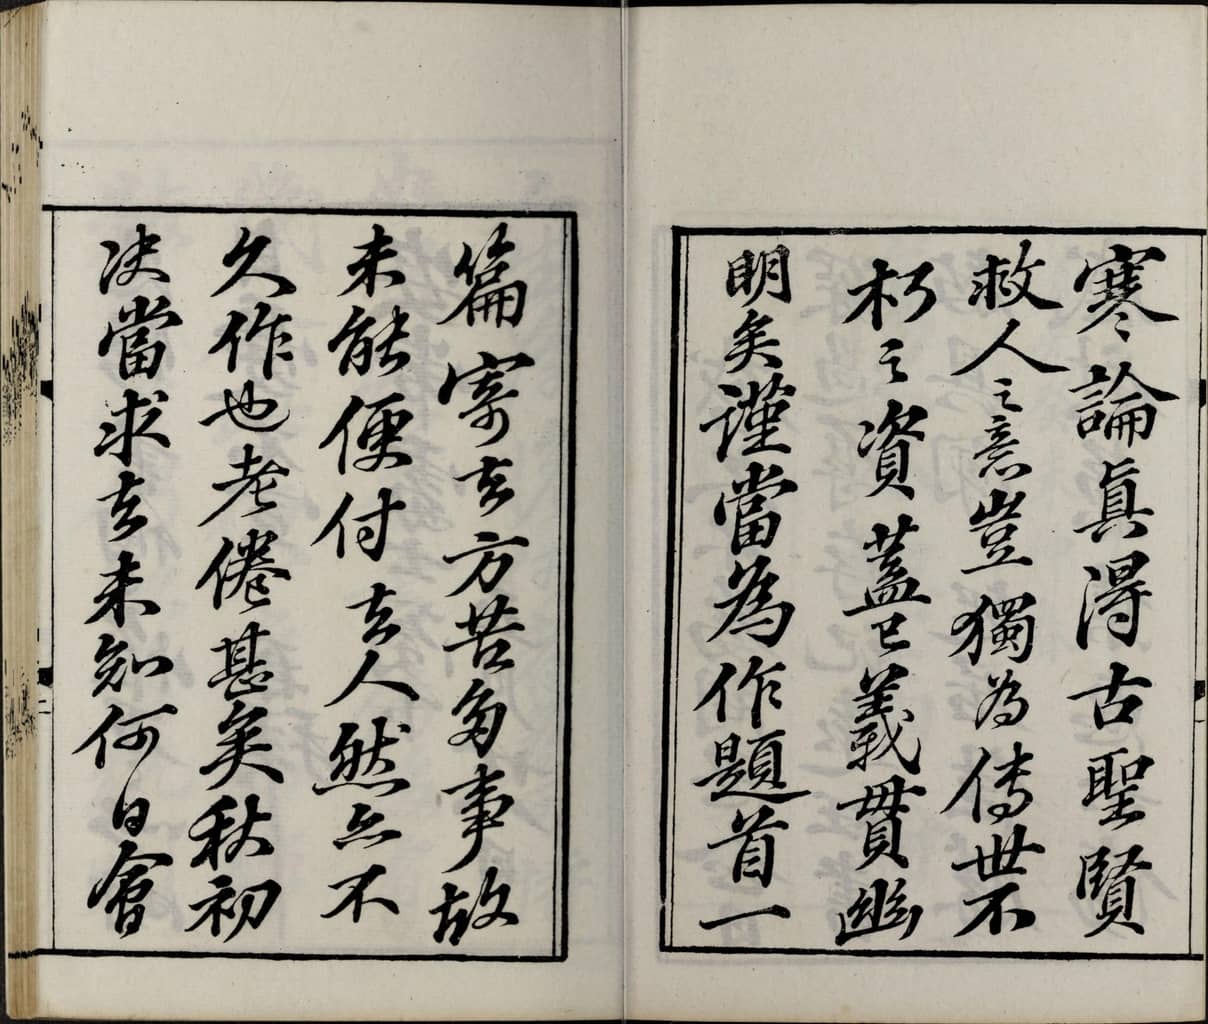 寒論真得古聖賢
救人之意豈獨為傳世不
朽之資蓋已義貫幽
明矣謹當為作題首一
篇寄去方苦多事故
未能便付去人然亦不
久作也老倦甚矣秋初
决當求去未知何日會
二